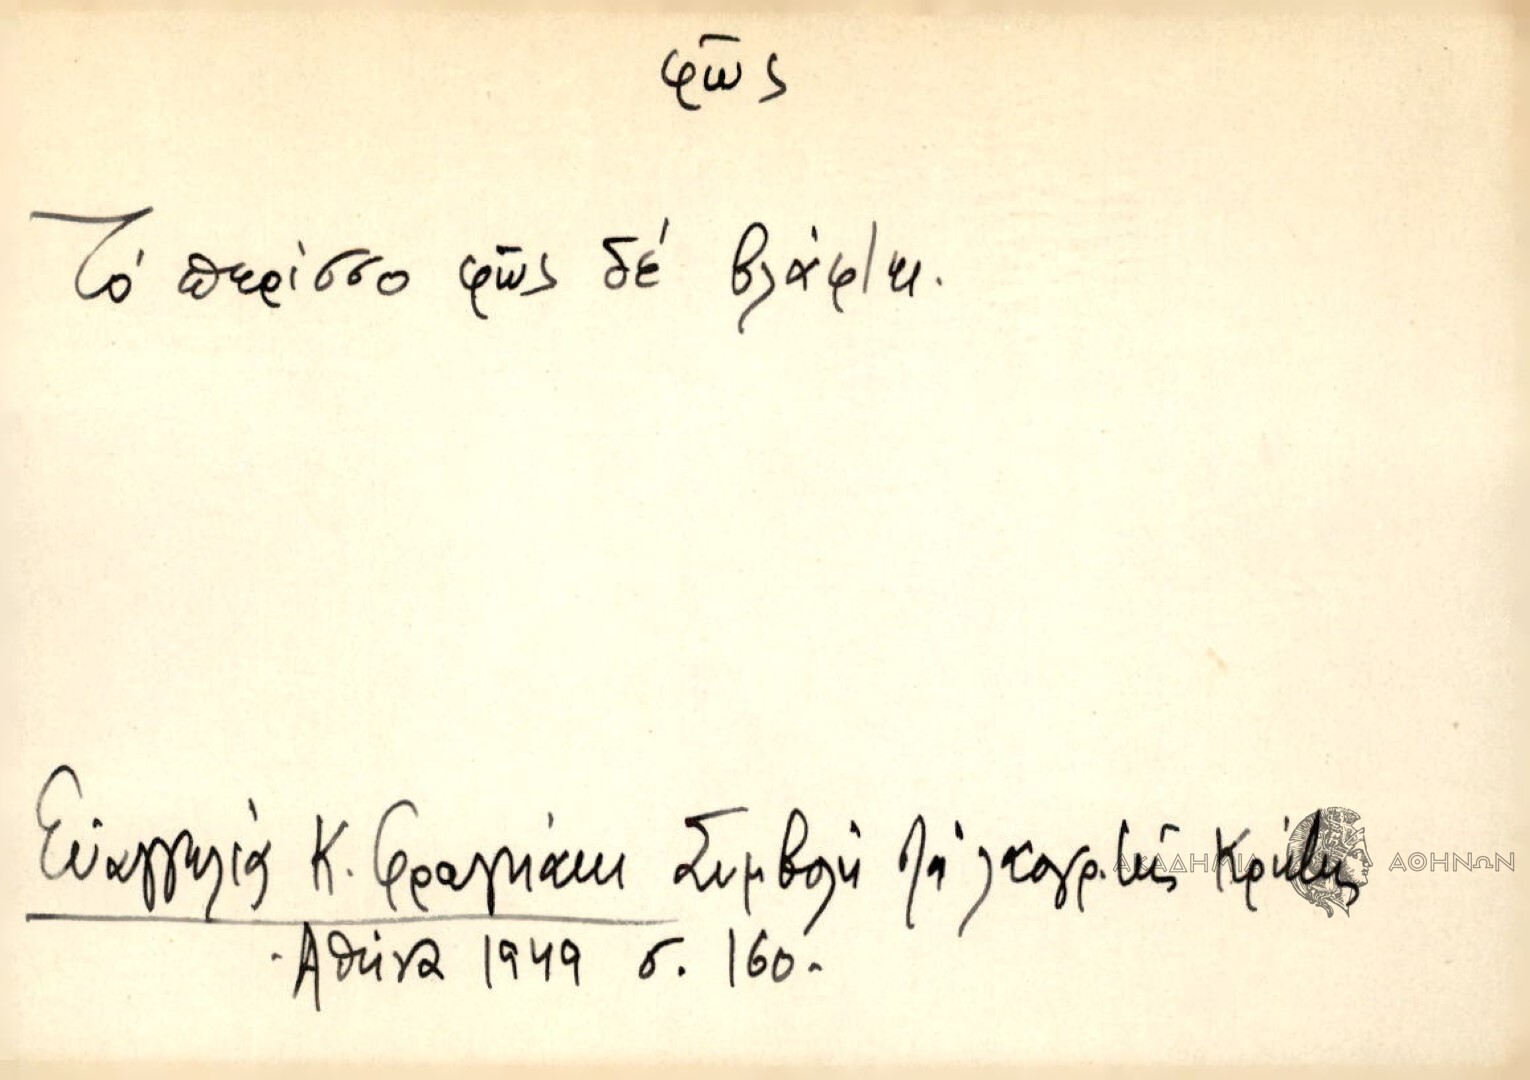 φῶς
Τό περίσσο φῶς δέ βλάφτει.
Εὐαγγελία Κ. Φραγκάκι Συμβολή στά λαογρ. τῆς Κρήτης
Ἀθήνα 1949 σ. 160.
ΑΚΑΔΗΜΙΑ ΑΘΗΝΩΝ